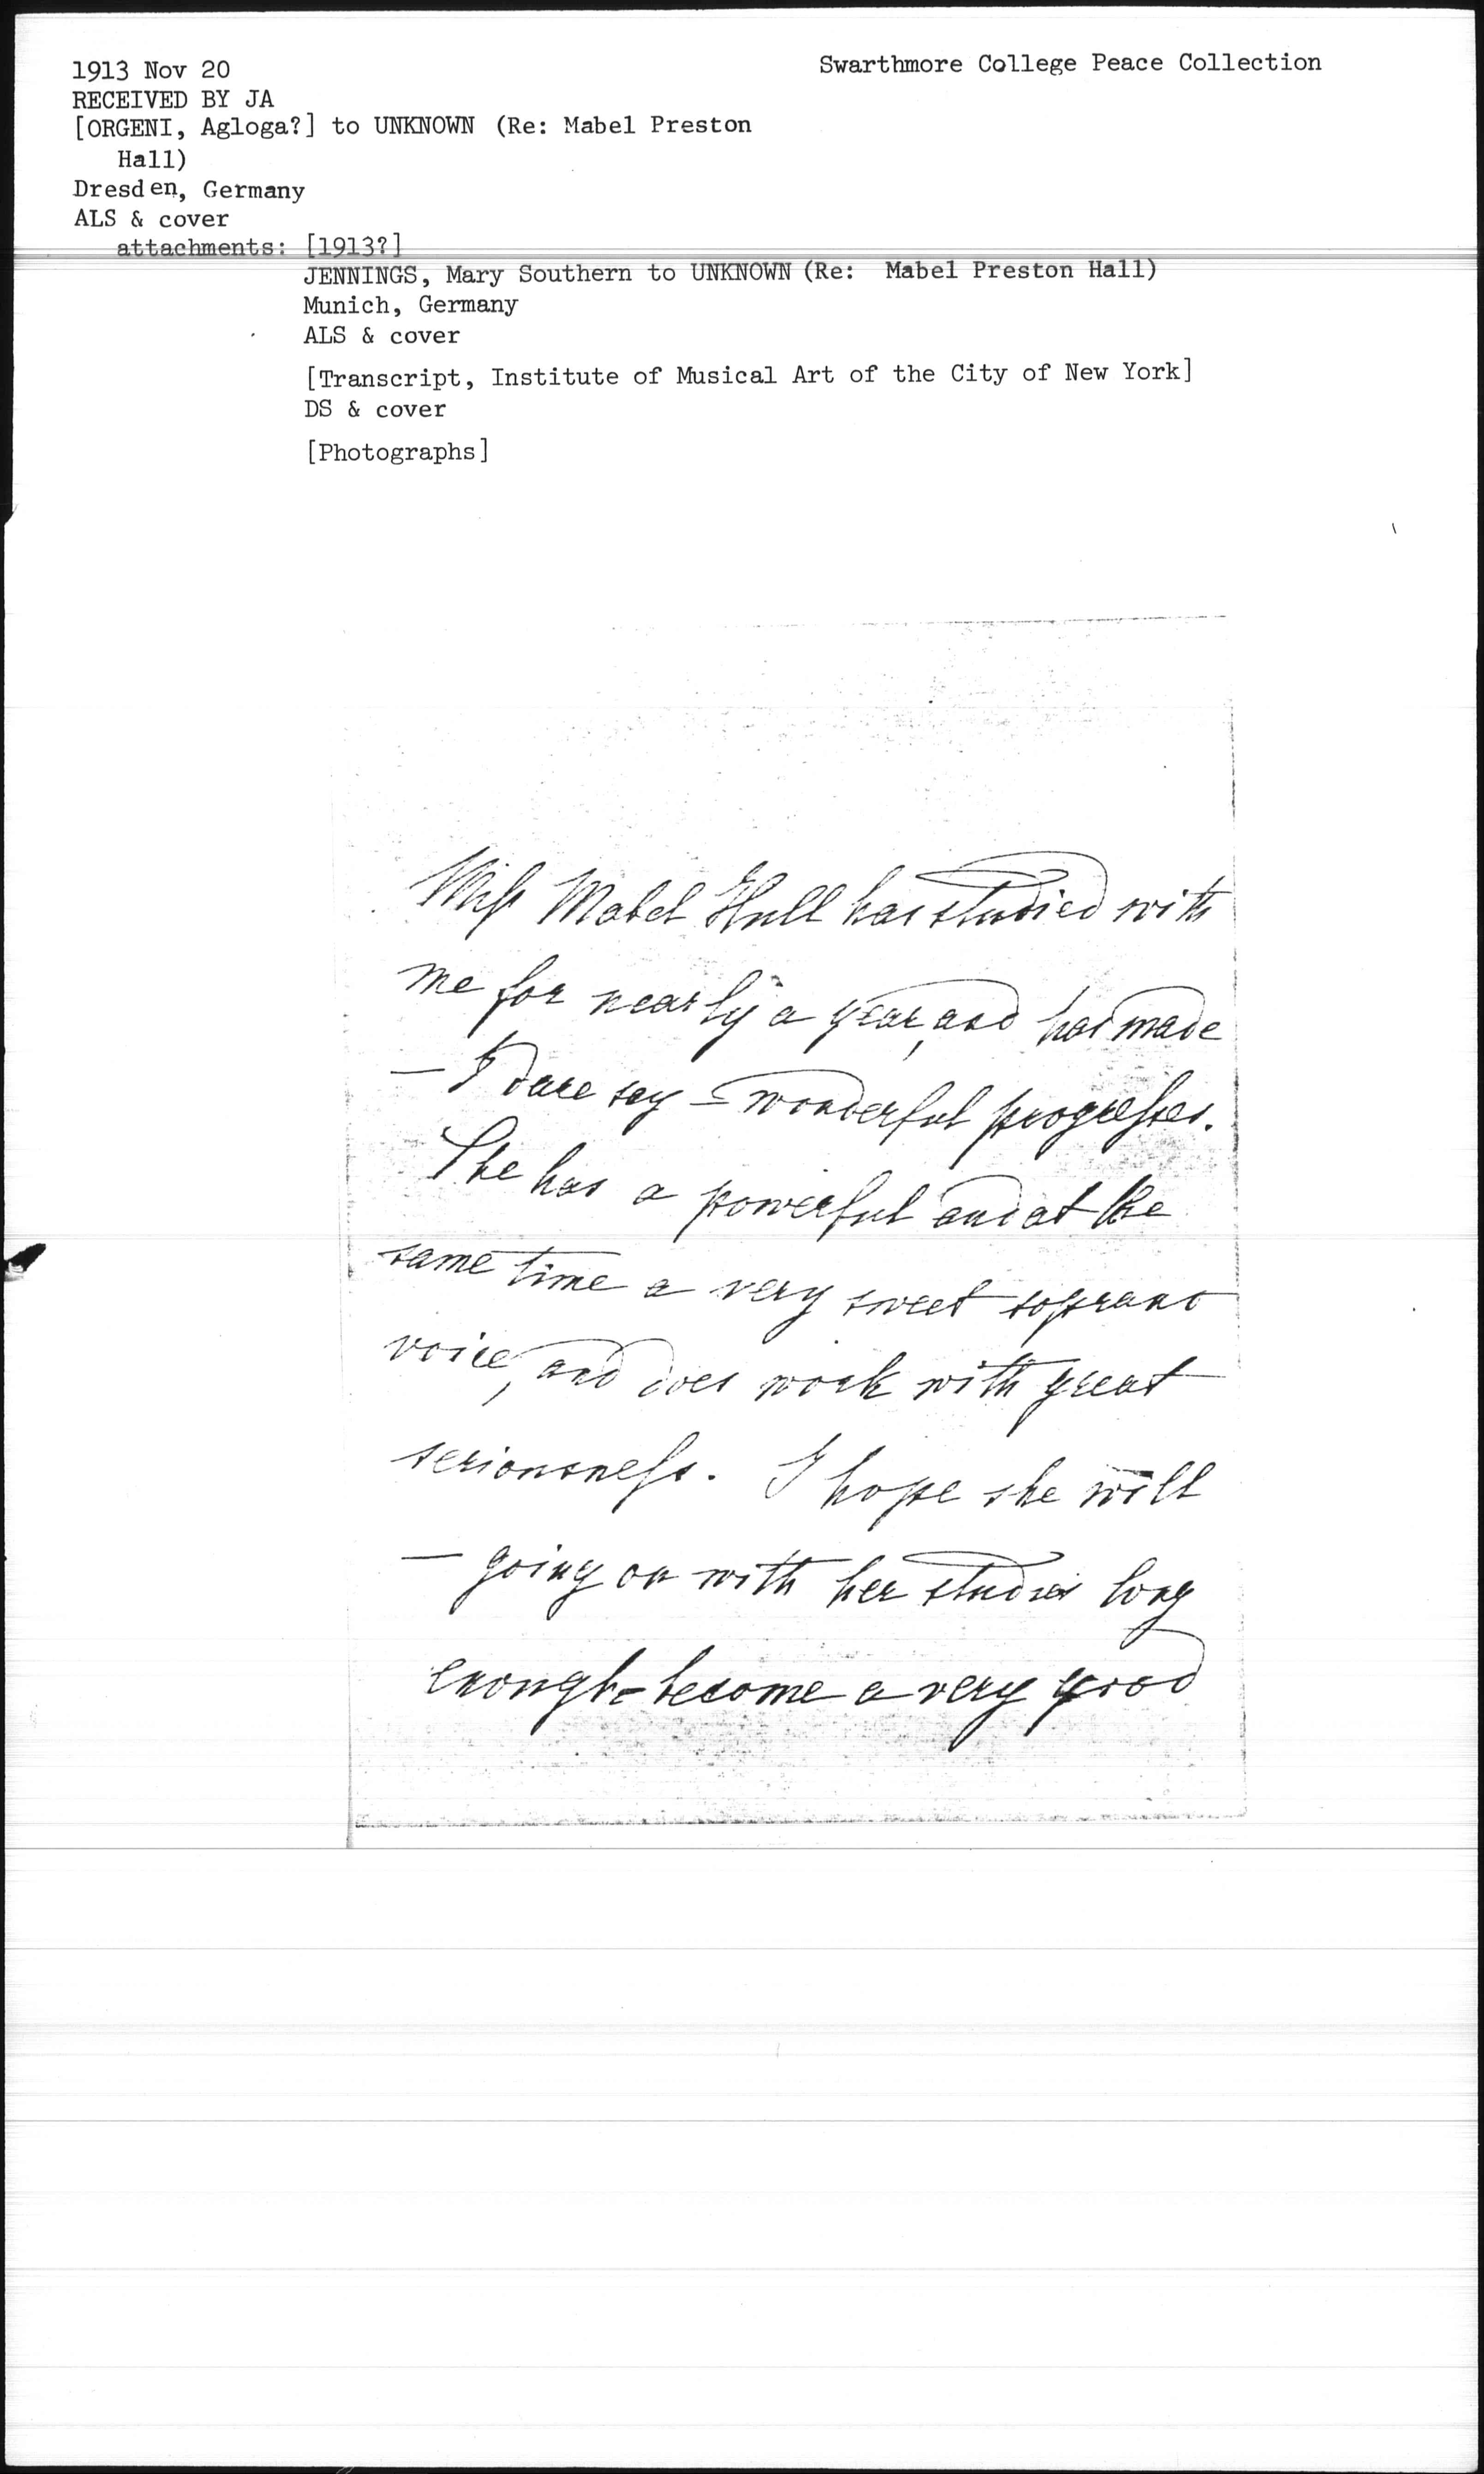 1913 Nov 20
Swarthmore College Peace Collection
RECEIVED BY JA
[ORGENI, Agloga?] to UNKNOWN (Re: Mabel Preston
Hall)
Dresden, Germany
ALS & cover
attachments: [1913?]
JENNINGS, Mary Southern to UNKNOWN (Re: Mabel Preston Hall)
Munich, Germany
ALS & cover
[Transcript, Institute of Musical Art of the City of New York]
DS & cover
[Photographs]
Miss Mabel Hall has studied with
me for nearly a year, and has made
— I dare say — wonderful progresses.
She has a powerful and at the
same time a very sweet soprano
voice, and does work with great
seriousness. I hope she will
— going on with her studies long
enough — become a very good